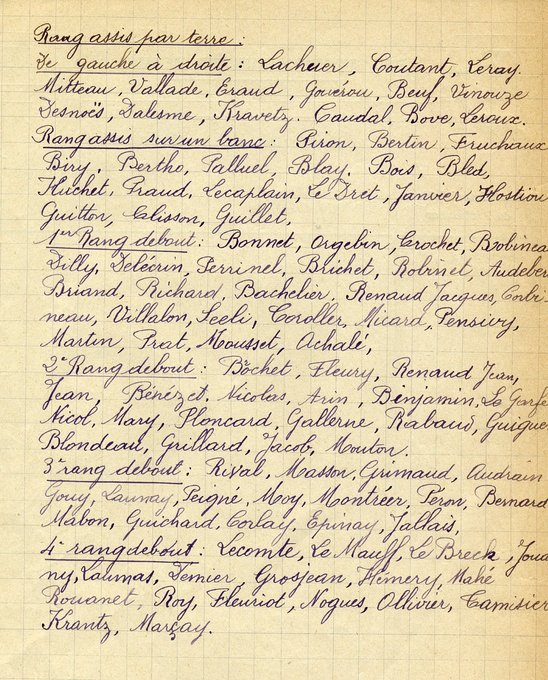 Rang assis par terre :
De gauche à droite : Lacheier, Coutant, Leray.
Mitteau, Vallade, Eraud, Gouérou, Beuf, Vinouze
Desnoës, Dalesme, Kravetz. Caudal, Bove, Leroux.
Rang assis sur un banc : Piron, Bertin, Fruchaux
Biry, Bertho, Palluel, Blay, Bois, Bled,
Huchet, Fraud, Lecaplain, Le Dret, Janvier, Hostiou
Guitton, Clisson, Guillet,
1er Rang debout : Bonnet, Orgebin, Crochet, Bobineau
Dilly, Delécrin, Perrinel, Brichet, Robinet, Audeber
Briand, Richard, Bachelier, Renaud Jacques, Corbi-
neau, Villalon, Feeli, Coroller, Micard, Pensivy,
Martin, Prat, Mousset, Achalé,
2e Rang debout : Bochet, Fleury, Renaud Jean,
Jean, Bénézet, Nicolas, Arin, Benjamin, La Garfe
Nicol, Mary, Ploncard, Gallerne, Rabaud, Guigue
Blondeau, Grillard, Jacob, Mouton.
3e rang debout : Rival, Masson, Grimaud, Audrain
Gouy, Launay, Peigne, Moy, Montréer, Péron, Bernard
Mabon, Guichard, Corlay, Epinay, Jallais,
4e rang debout : Lecomte, Le Mauff, Le Breck, Joua
ny, Laumas, Demier, Grosjean, Hémery, Mahé
Rouanet, Roy, Fleuriot, Nogues, Ollivier, Camisier
Krantz, Marçay.